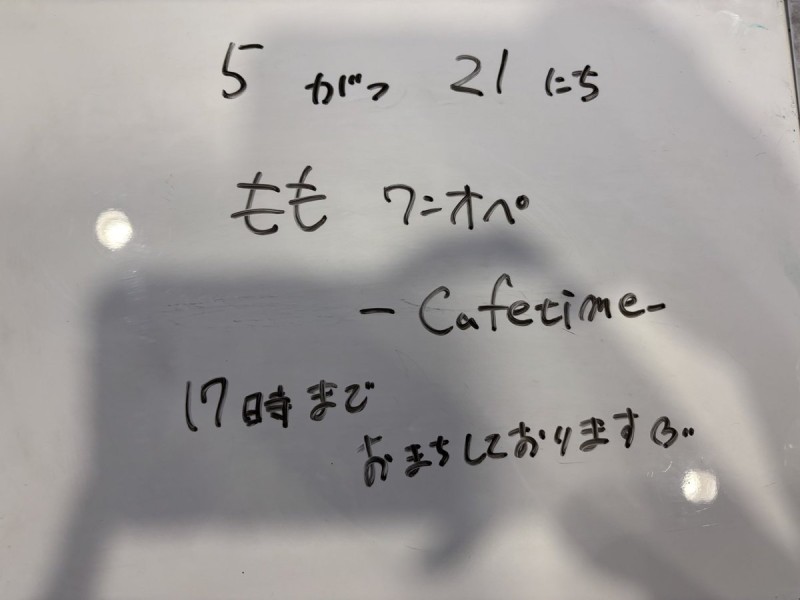 5 がつ 21 にち
もも ワニオペ
-Cafetime-
17時まで
おまちしております